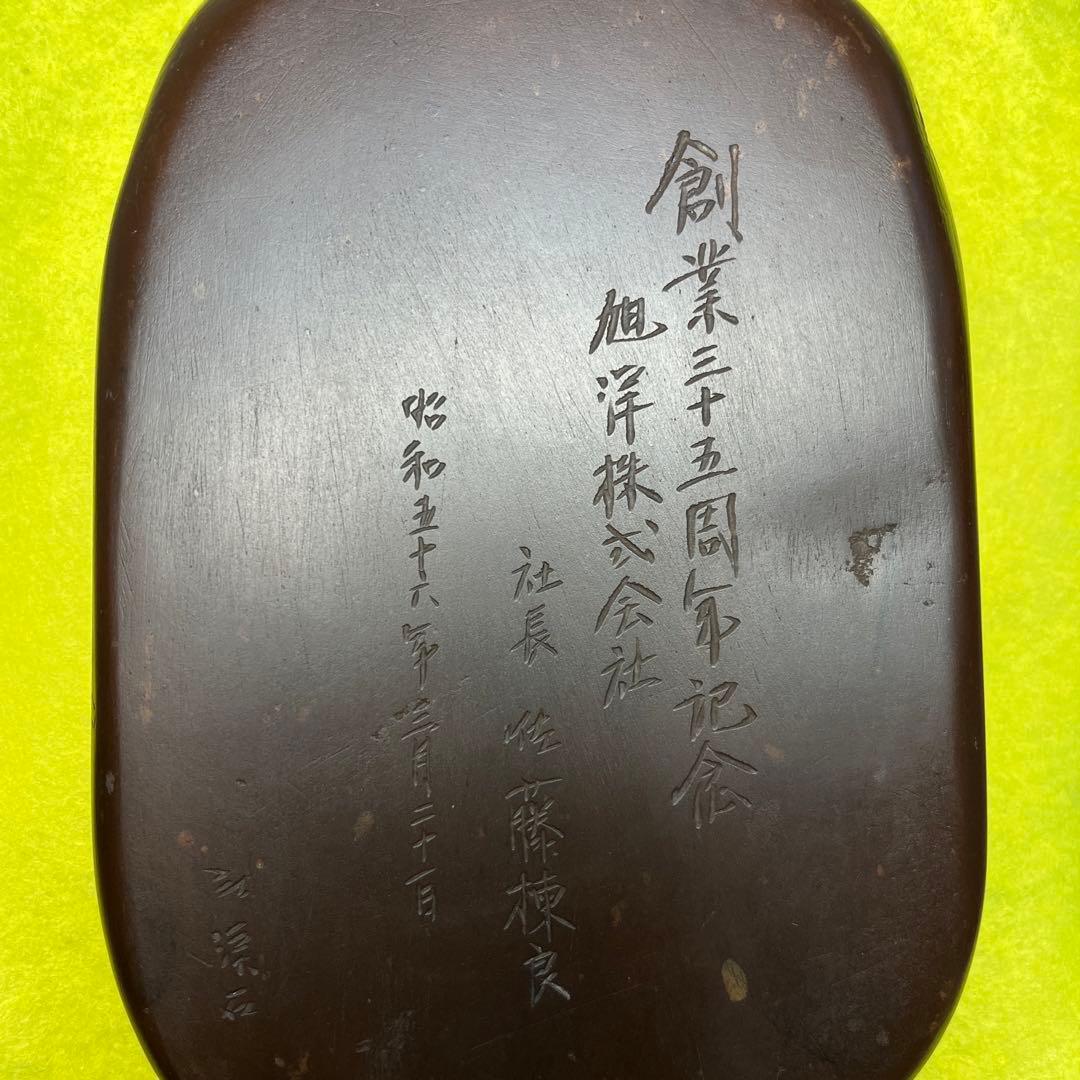 創業三十五周年記念
旭洋株式会社
社長 佐藤棟良
昭和五十六年三月二十一日
渓石